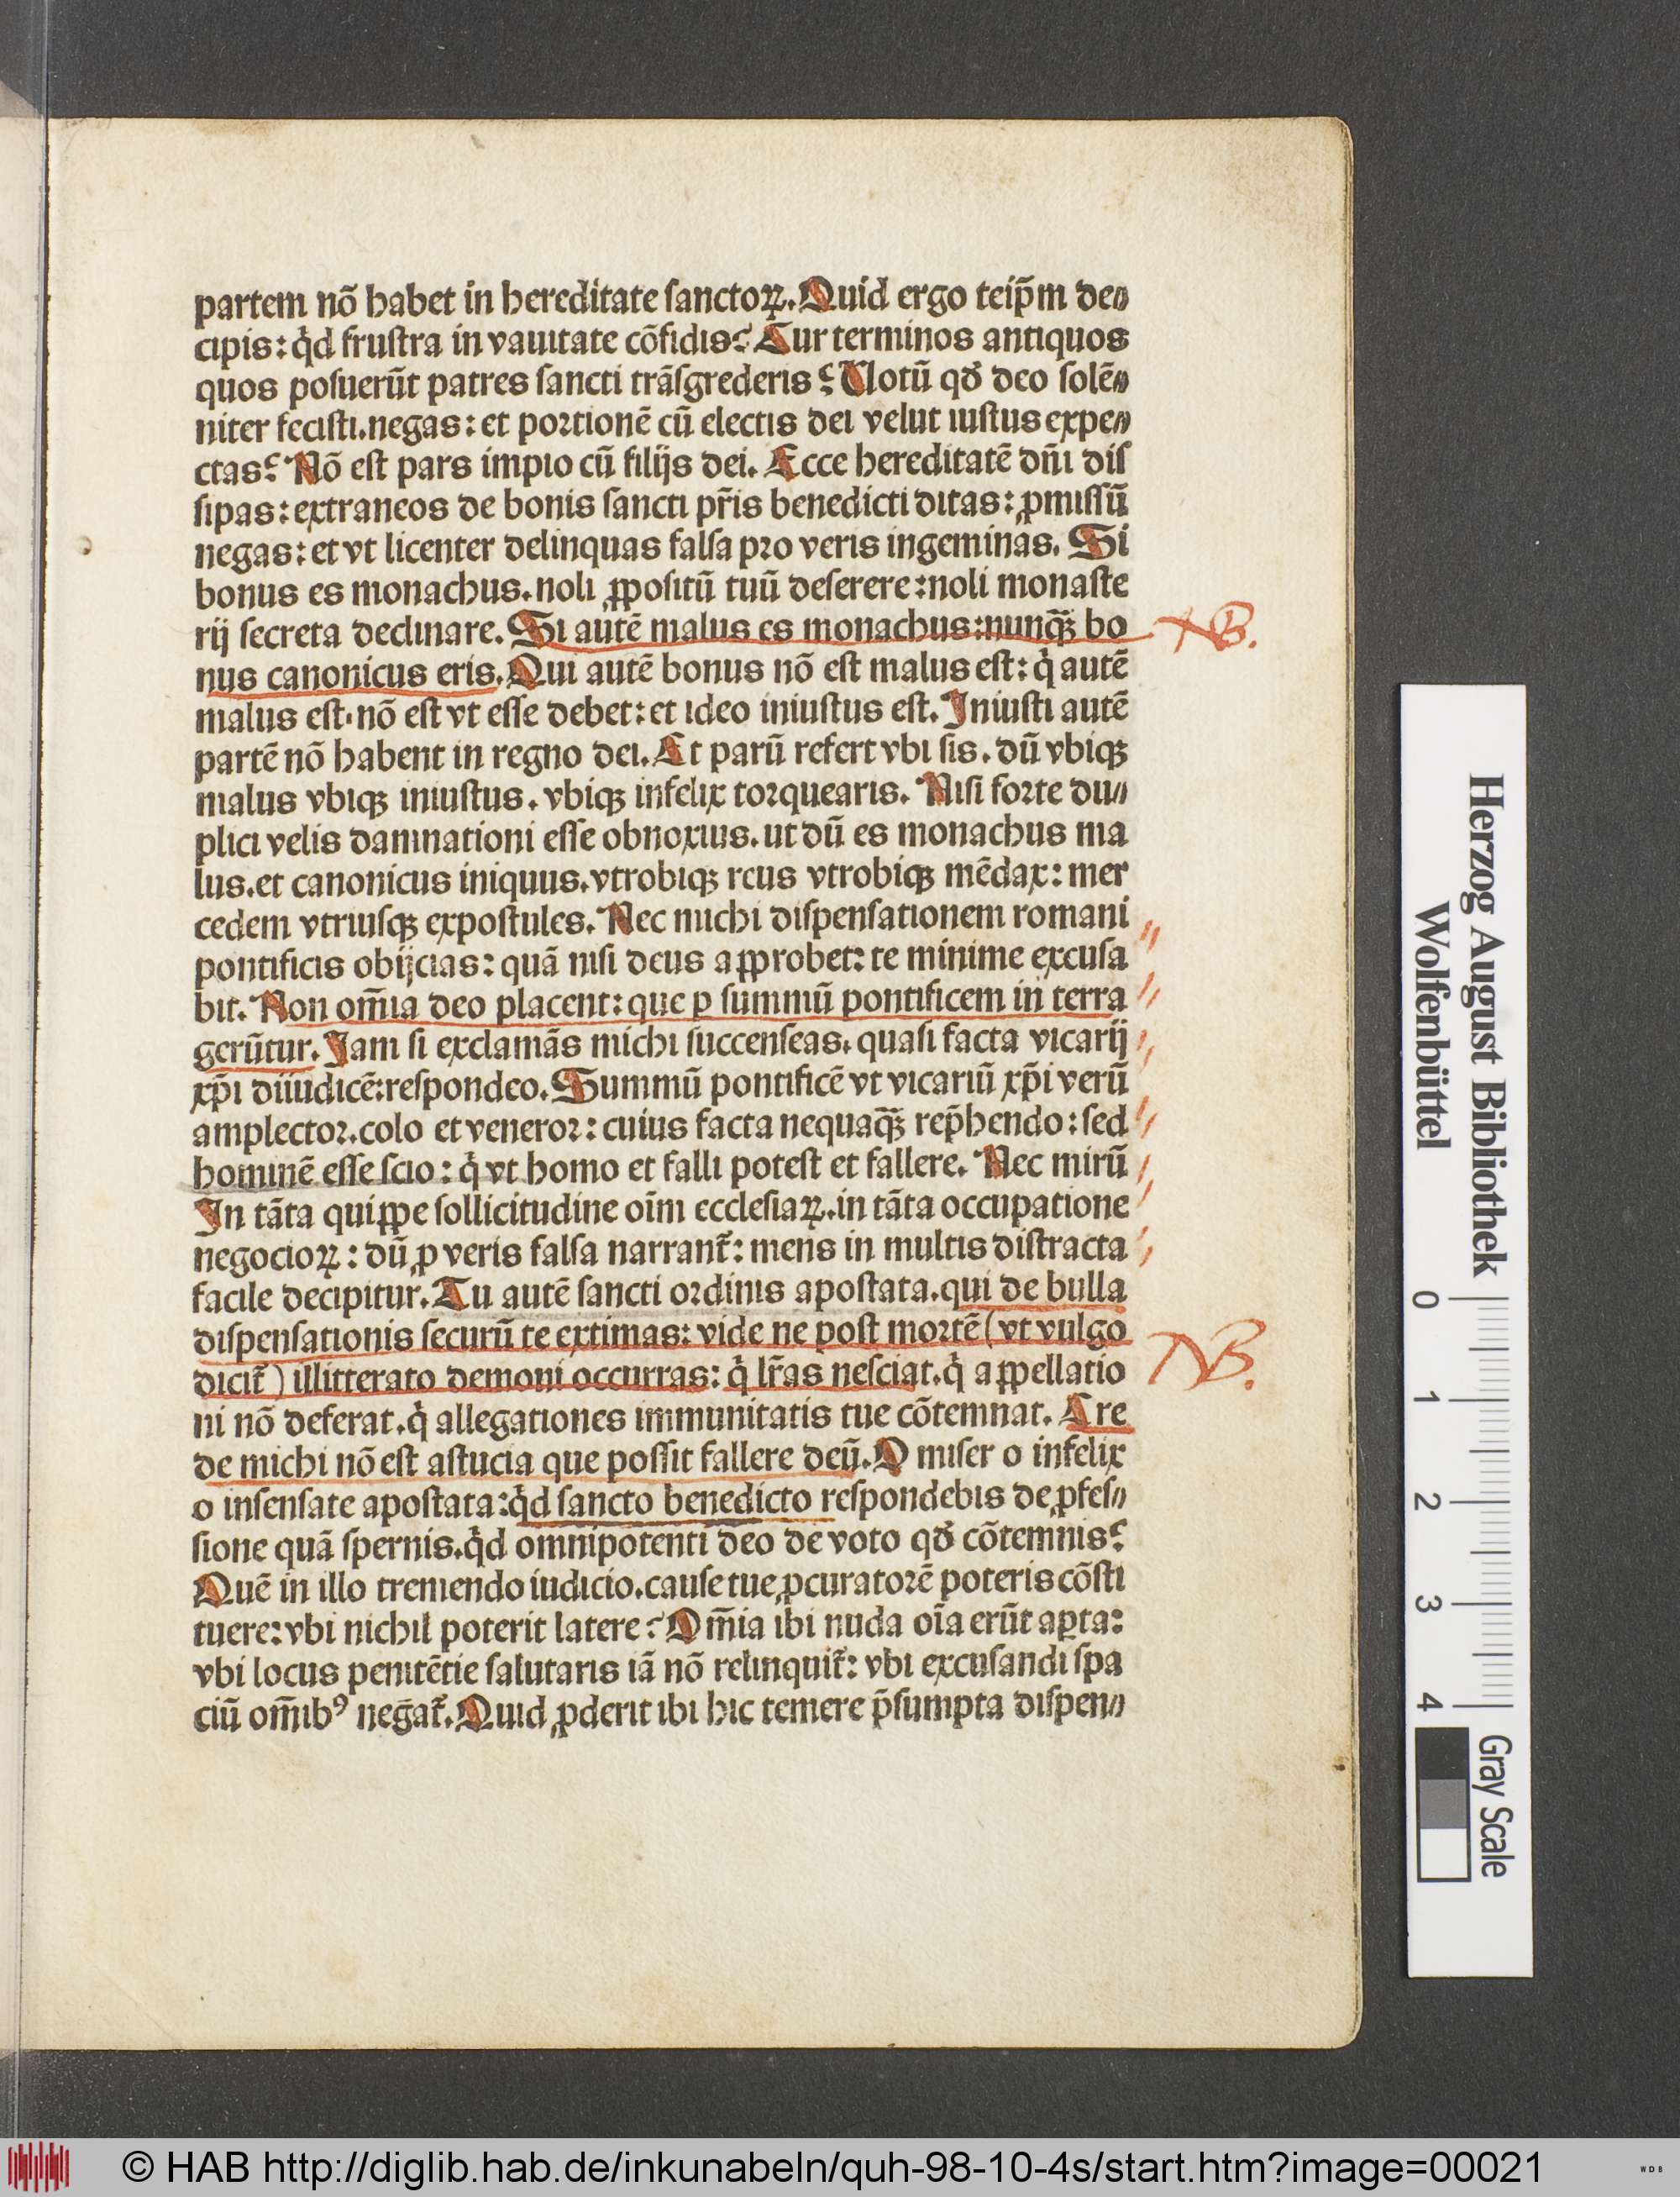 partem nō habet in hereditate ſanctoꝝ. Quid ergo teip̄m de⸗
cipis: qͥd fruſtra in vauitate cōfidis? Cur terminos antiquos
quos poſuerūt patres ſancti trāſgrederis? Uotū qđ deo ſolē⸗
niter feciſti.negas: et poꝛtionē cū electis dei velut iuſtus expe⸗
ctas? Nō eſt pars impio cū filijs dei. Ecce hereditatē dn̄i diſ
ſipas: extraneos de bonis ſancti pr̄is benedicti ditas: ꝓmiſſū
negas: et vt licenter delinquas falſa pꝛo veris ingeminas. Si
bonus es monachus.noli ꝓpoſitū tuū deſerere: noli monaſte
rij ſecreta declinare. Si autē malus es monachus: nunqꝫ̄ bo
nus canonicus eris. Qui autē bonus nō eſt malus eſt: qͥ autē
malus eſt.nō eſt vt eſſe debet: et ideo iniuſtus eſt. Iniuſti autē
partē nō habent in regno dei. Et parū refert vbi ſis. dū vbiqꝫ
malus vbiqꝫ iniuſtus. vbiqꝫ infelix toꝛquearis. Niſi foꝛte du⸗
plici velis damnationi eſſe obnoxius. ut dū es monachus ma
lus.et canonicus iniquus.vtrobiqꝫ reus vtrobiqꝫ mēdax: mer
cedem vtriuſqꝫ expoſtules. Nec michi diſpenſationem romani
pontificis obijcias: quā niſi deus apꝓrobet: te minime excuſa
bit. Non om̄ia deo placent: que ꝑ ſummū pontificem in terra
gerūtur. Iam ſi exclamās michi ſuccenſeas. quaſi facta vicarij
xp̄i diiudicē: reſpondeo. Summū pontificē vt vicariū xp̄i verū
amplectoꝛ.colo et veneroꝛ: cuius facta nequaqꝫ̄ rep̄hendo: ſed
hominē eſſe ſcio: qͥ vt homo et falli poteſt et fallere. Nec mirū
In tāta quippe ſollicitudine oīm eccleſiaꝝ.in tāta occupatione
negocioꝝ: dū ꝓ veris falſa narrant᷑: mens in multis diſtracta
facile decipitur. Tu autē ſancti oꝛdinis apoſtata.qui de bulla
diſpenſationis ſecurū te extimas: vide ne poſt moꝛtē (vt vulgo
dicit᷑) illitterato demoni occurras: qͥ lr̄as neſciat.qͥ appellatio
ni nō deferat.qͥ allegationes immunitatis tue cōtemnat. Cre
de michi nō eſt aſtucia que poſſit fallere deū. O miſer o infelix
o inſenſate apoſtata: qͥd ſancto benedicto reſpondebis de ꝓfeſ⸗
ſione quā ſpernis.qͥd omnipotenti deo de voto qđ cōtemnis?
Quē in illo tremendo iudicio.cauſe tue ꝓcuratoꝛē poteris cōſti
tuere: vbi nichil poterit latere? Om̄ia ibi nuda oīa erūt aꝑta:
vbi locus penitētie ſalutaris iā nō relinquit᷑: vbi excuſandi ſpa
ciū om̄ibꝰ negat᷑. Quid ꝓderit ibi hic temere p̄ſumpta diſpen⸗
NB.
NB.
Herzog August Bibliothek
Wolfenbüttel
0 1 2 3 4
Gray Scale
© HAB http://diglib.hab.de/inkunabeln/quh-98-10-4s/start.htm?image=00021
WDB